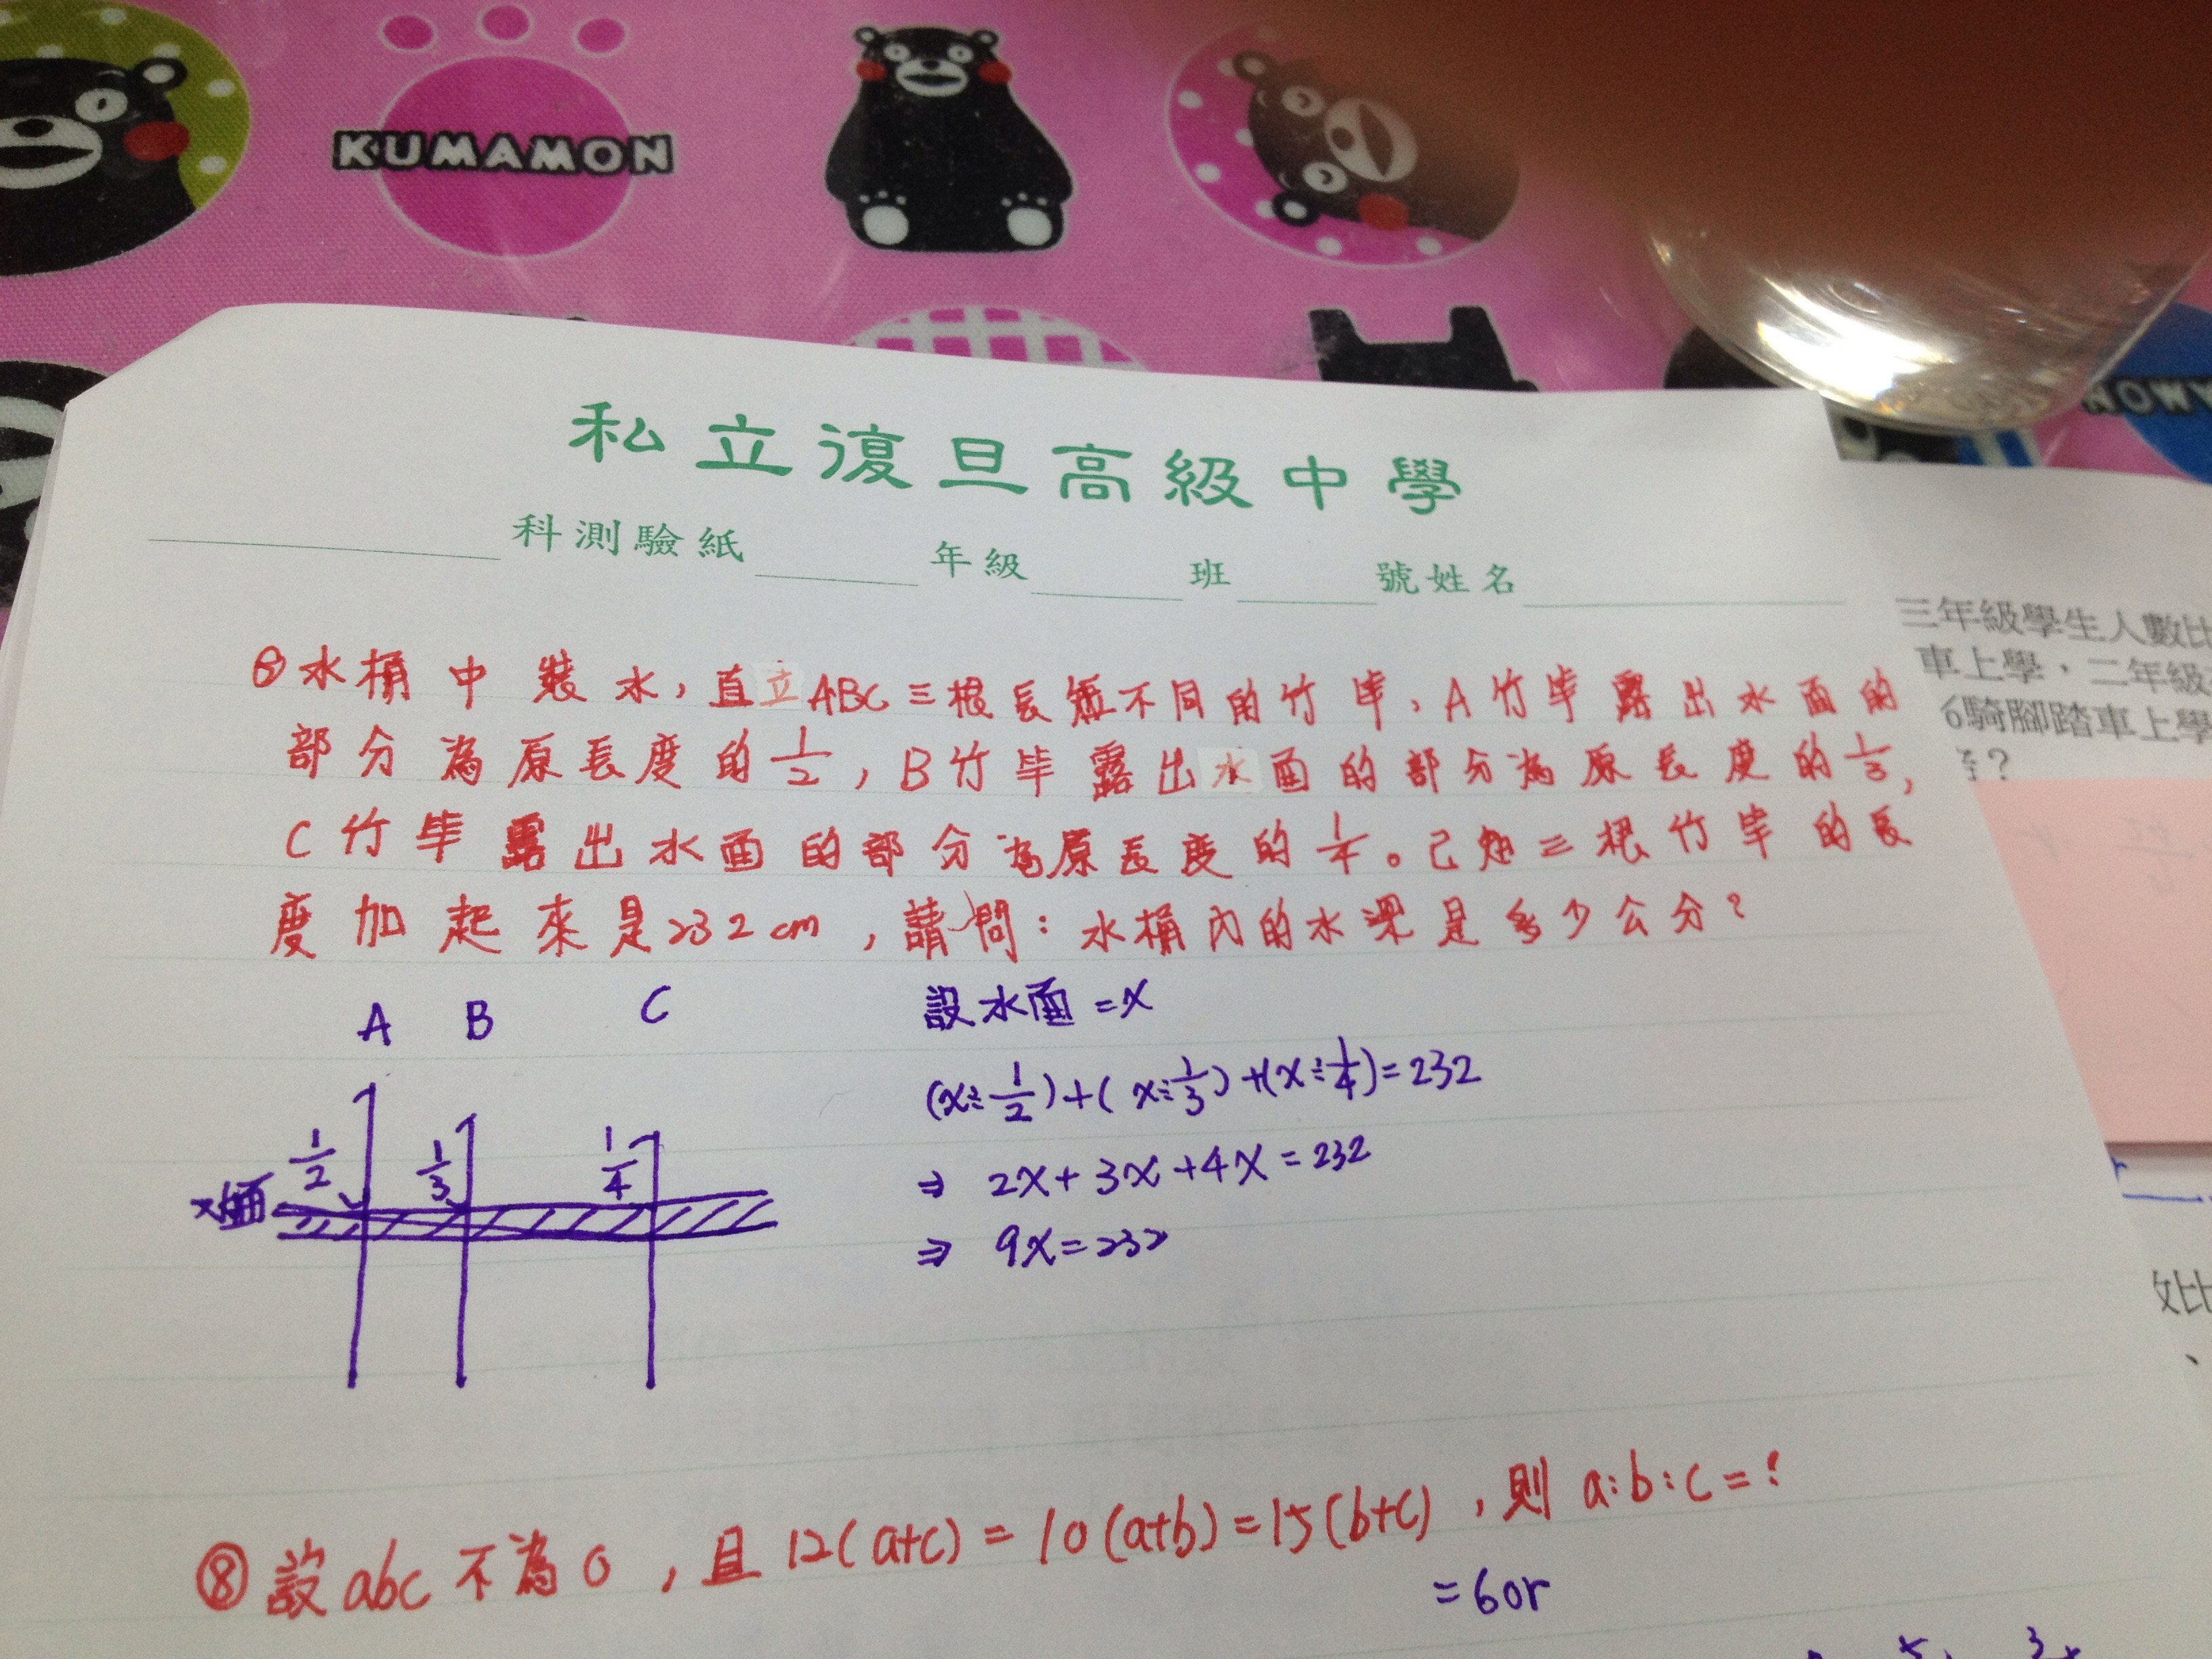 KUMAMON
私立復旦高級中學
科測驗紙 年級 班 號姓名
三年級學生人數比
車上學，二年級
6騎腳踏車上學
⑥水桶中裝水，直立ABC三根長短不同的竹竿，A竹竿露出水面的
部分為原長度的1/2，B竹竿露出水面的部分為原長度的1/3，
C竹竿露出水面的部分為原長度的1/4。已知三根竹竿的長
度加起來是232cm，請問：水桶內的水深是多少公分？
A B C
設水面=x
(x÷1/2)+(x÷1/3)+(x÷1/4)=232
⇒ 2x+3x+4x=232
⇒ 9x=232
1/2 1/3 1/4
水面
⑧設abc不為0，且12(a+c)=10(a+b)=15(b+c)，則a:b:c=?
=60r